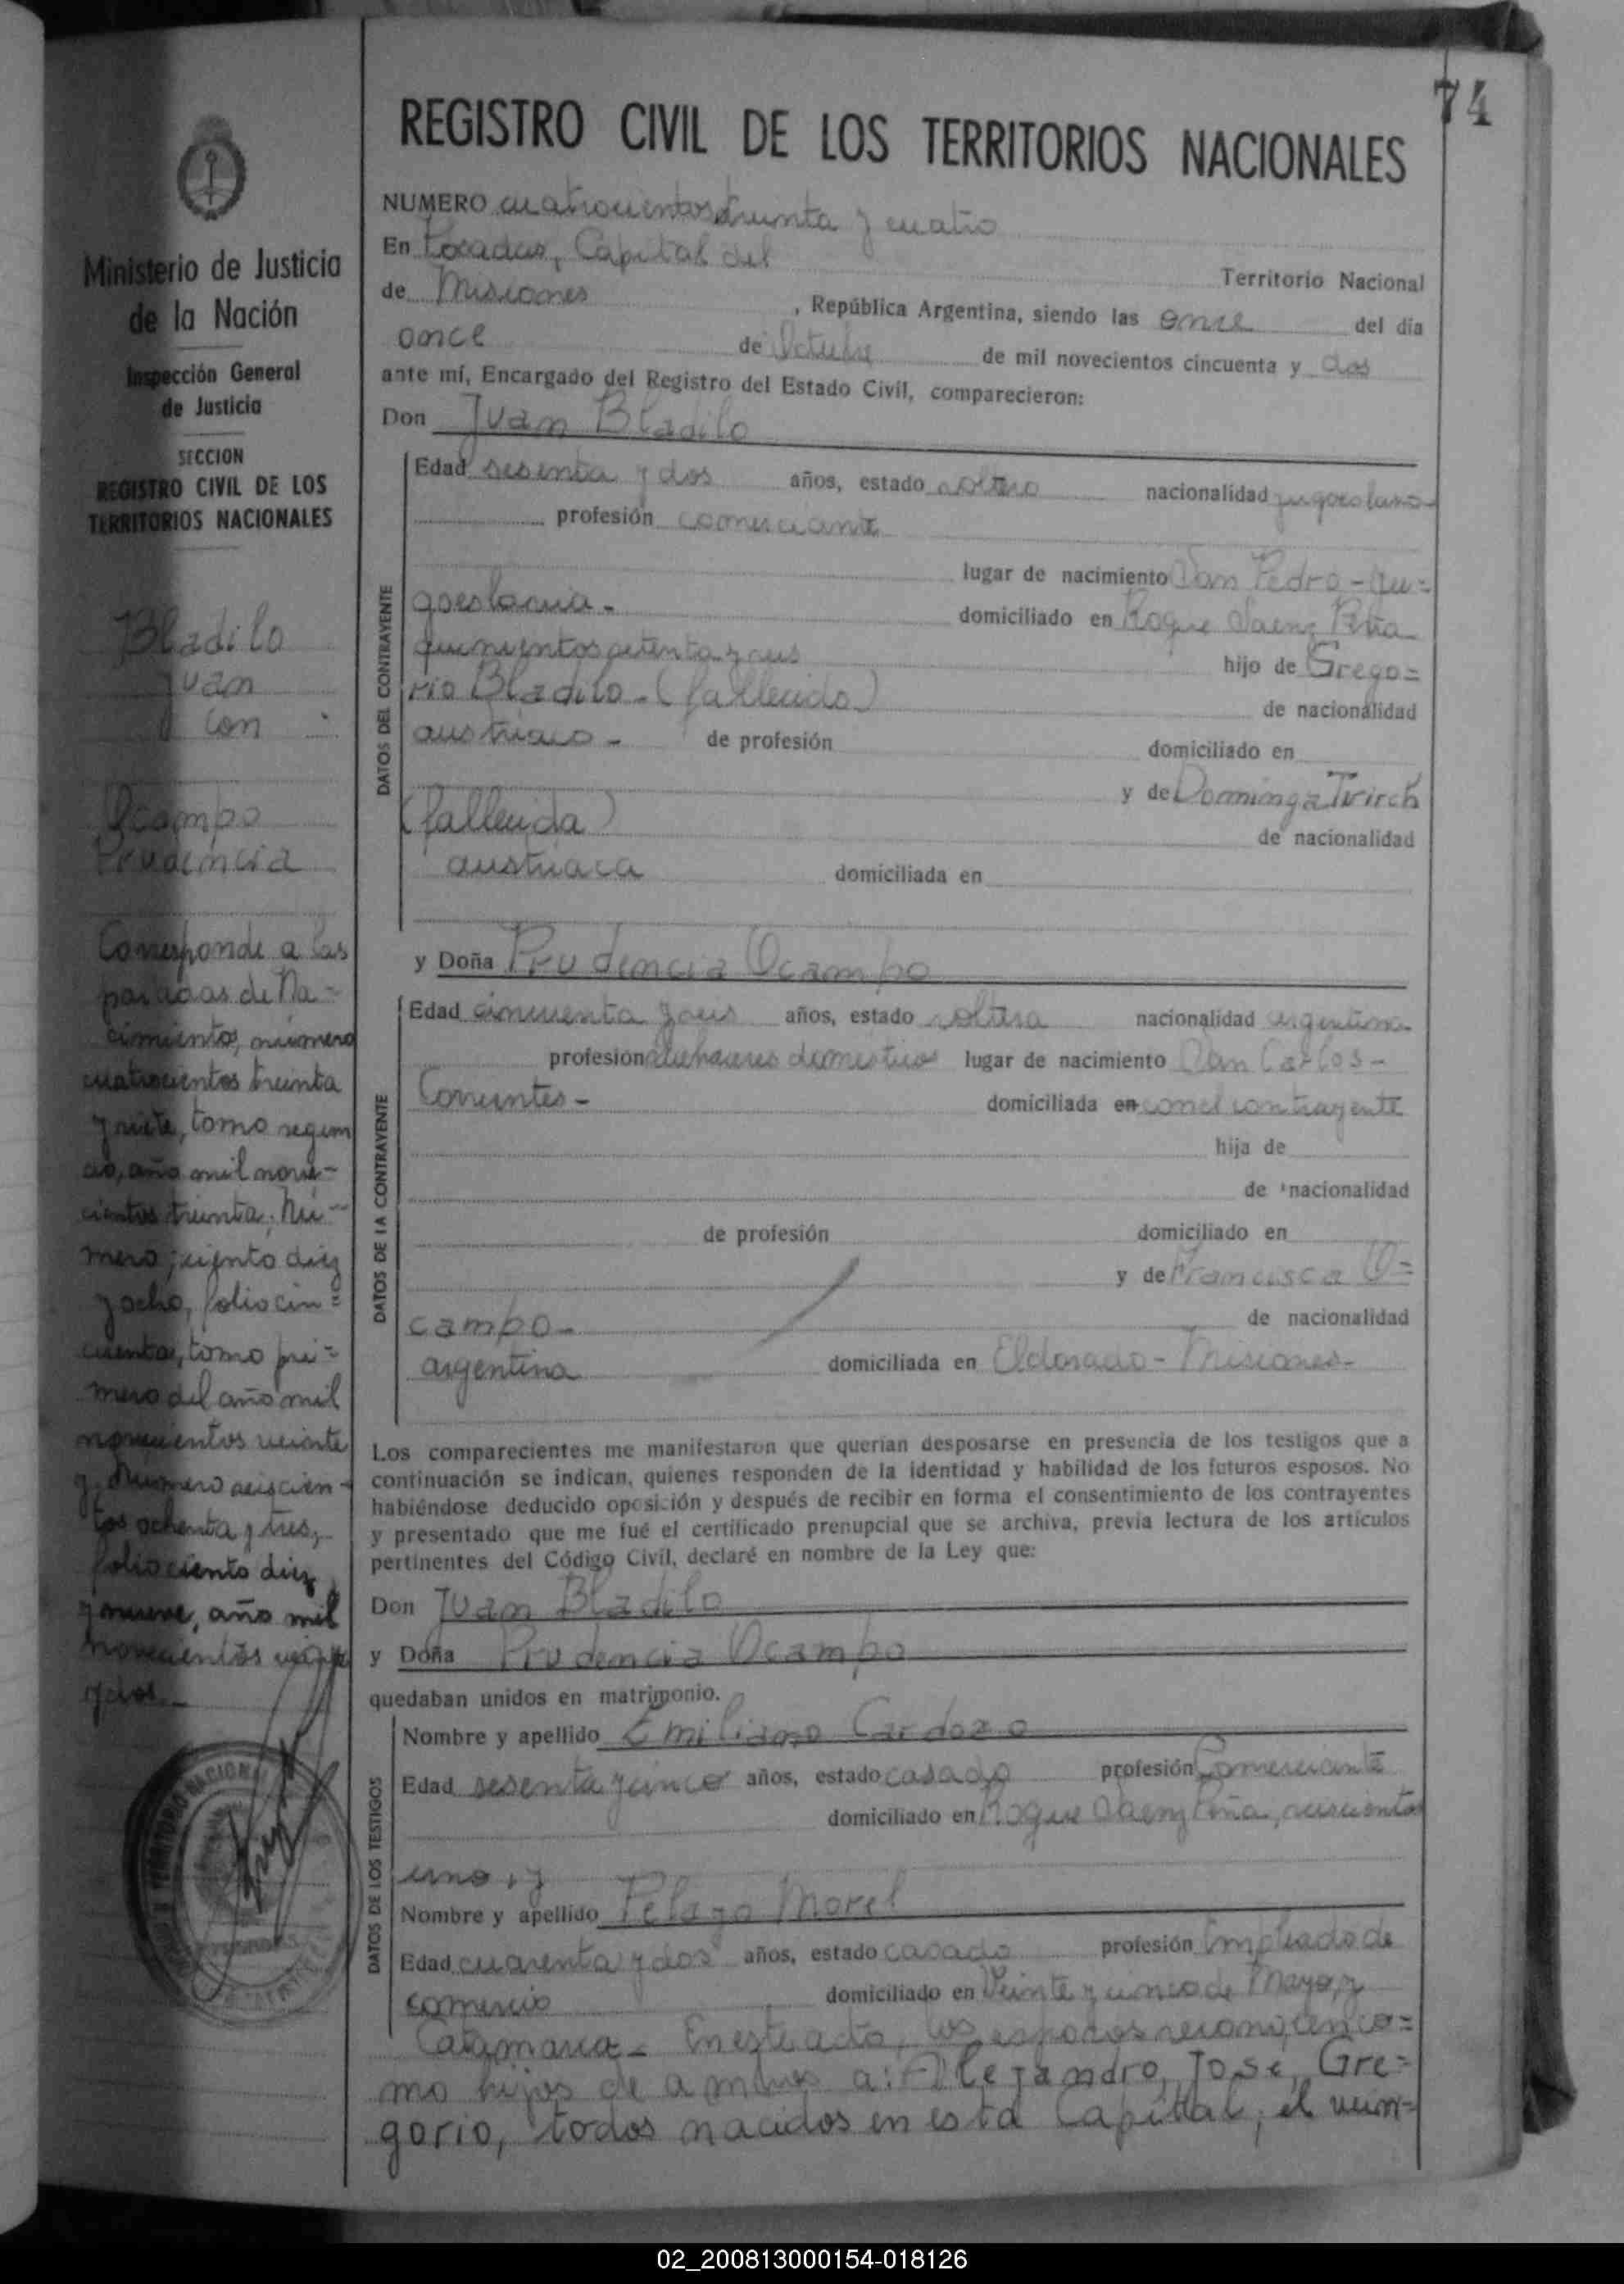 74
REGISTRO CIVIL DE LOS TERRITORIOS NACIONALES
Ministerio de Justicia
de la Nación
Inspección General
de Justicia
SECCION
REGISTRO CIVIL DE LOS
TERRITORIOS NACIONALES
Bladilo
Juan
con
Ocampo
Prudencia
Corresponde a las
partidas de Na-
cimiento, número
cuatrocientos treinta
y siete, tomo segun
do, año mil nove-
cientos treinta; Nú-
mero; ciento diez
y ocho, folio cin=
cuenta, tomo pri=
mero del año mil
novecientos veinte
y Número seiscien-
tos ochenta y tres,
folio ciento diez
y nueve, año mil
novecientos veinte
y dos.-
NUMERO cuatrocientos treinta y cuatro
En Posadas, Capital del
Territorio Nacional
de Misiones, República Argentina, siendo las once del día
once de Octubre de mil novecientos cincuenta y dos
ante mí, Encargado del Registro del Estado Civil, comparecieron:
Don Juan Bladilo
DATOS DEL CONTRAYENTE
Edad sesenta y dos años, estado soltero nacionalidad yugoeslavo-
profesión comerciante
lugar de nacimiento San Pedro - Yu=
goeslavia.- domiciliado en Roque Saenz Peña
quinientos setenta y seis hijo de Grego=
rio Bladilo - (fallecido) de nacionalidad
austriaco - de profesión domiciliado en
y de Dominga
(fallecida) de nacionalidad
austriaca domiciliada en
y Doña Prudencia Ocampo
DATOS DE LA CONTRAYENTE
Edad cincuenta y seis años, estado soltera nacionalidad argentina
profesión quehaceres domesticos lugar de nacimiento San Carlos -
Corrientes - domiciliada en con el contrayente
hija de
de nacionalidad
de profesión domiciliado en
y de Francisca O=
campo - de nacionalidad
argentina domiciliada en Eldorado - Misiones -
Los comparecientes me manifestaron que querían desposarse en presencia de los testigos que a
continuación se indican, quienes responden de la identidad y habilidad de los futuros esposos. No
habiéndose deducido oposición y después de recibir en forma el consentimiento de los contrayentes
y presentado que me fué el certificado prenupcial que se archiva, previa lectura de los artículos
pertinentes del Código Civil, declaré en nombre de la Ley que:
Don Juan Bladilo
y Doña Prudencia Ocampo
quedaban unidos en matrimonio.
DATOS DE LOS TESTIGOS
Nombre y apellido Emiliano Cardozo
Edad sesenta y cinco años, estado casado profesión Comerciante
domiciliado en Roque Saenz Peña, seiscientos
uno, y
Nombre y apellido Pelayo Morel
Edad cuarenta y dos años, estado casado profesión Empleado de
comercio domiciliado en Veinte y cinco de Mayo, y
Catamarca - En este acto, los esposos reconocen co=
mo hijos de ambos a: Alejandro, José, Gre=
gorio, todos nacidos en esta Capital, el vein=
02_200813000154-018126